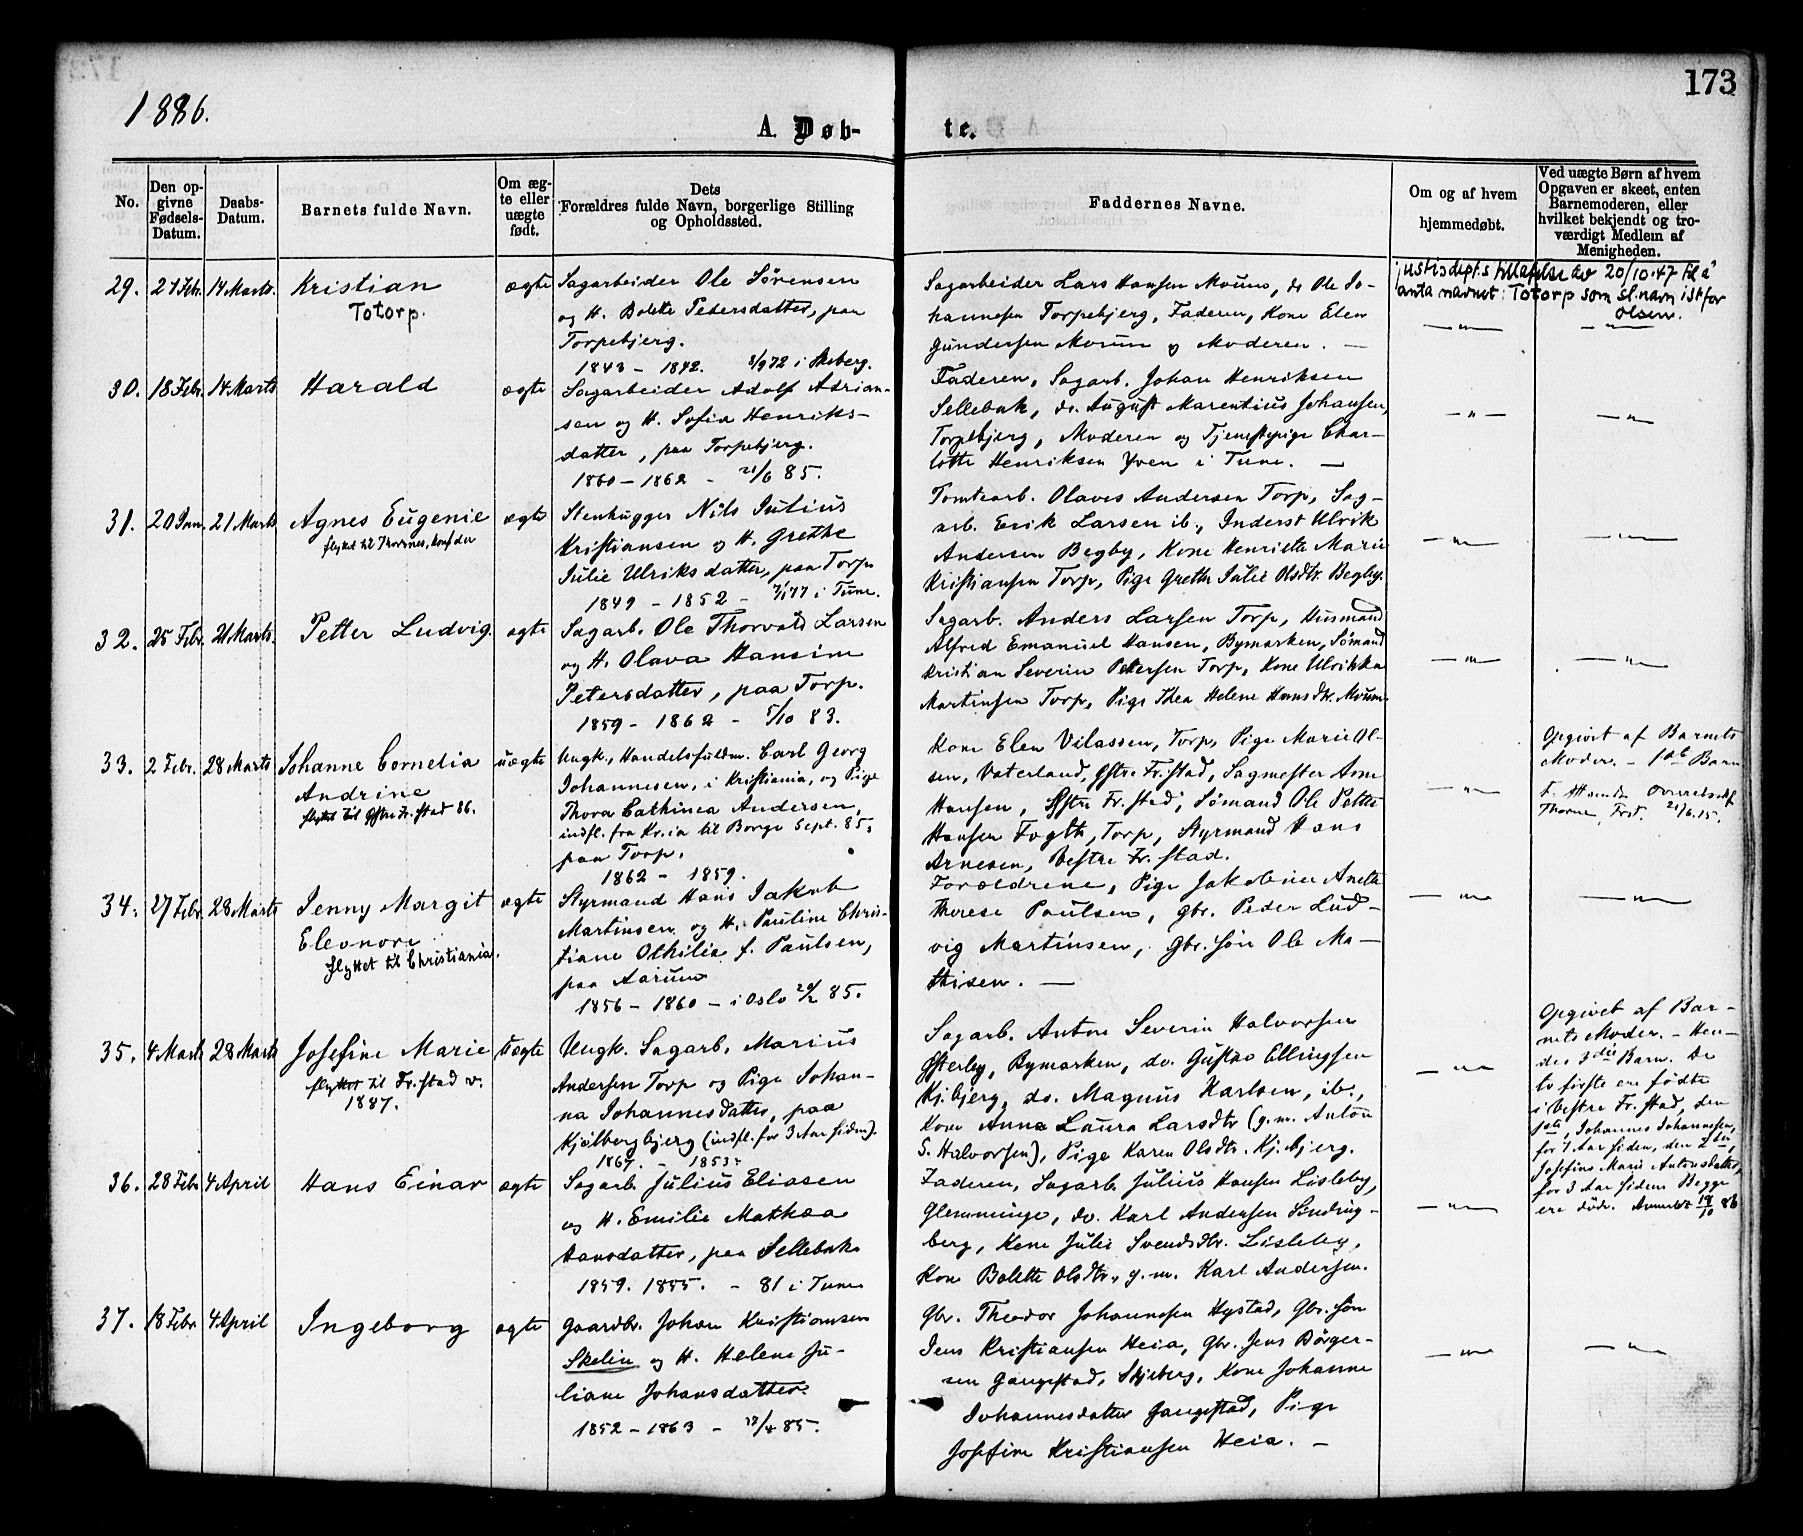 173
1886.
A. Døb-
te.
No.
Den op-
givne
Fødsels-
Datum.
Daabs-
Datum.
Barnets fulde Navn.
Om æg-
te eller
uægte
født.
Dets
Forældres fulde Navn, borgerlige Stilling
og Opholdssted.
Faddernes Navne.
Om og af hvem
hjemmedøbt.
Ved uægte Børn af hvem
Opgaven er skeet, enten
Barnemoderen, eller
hvilket bekjendt og tro-
værdigt Medlem af
Menigheden.
29. 21 Febr. 14 Marts. Kristian
Totorp.
ægte
Sagarbeider Ole Sörensen
og H. Bolette Pedersdatter, paa
Torpebjerg.
1843 – 1842. 8/9 72 i Skeberg.
Sagarbeider Lars Hansen Moum, do Ole Jo-
hannesen Torpebjerg, Faderen, Kone Elen
Gundersen Moum og Moderen. —
justisdepts tillatelse av 20/10.47 til å
anta navnet: Totorp som sl.navn istfor
Olsen.
— " —
— " —
30. 18 Febr. 14 Marts Harald
ægte
Sagarbeider Adolf Adrian-
sen og H. Sofia Henriks-
datter, paa Torpebjerg.
1860 – 1862 - 21/6 85.
Faderen, Sagarb. Johan Henriksen
Sellebak, do. August Marentius Johansen,
Torpebjerg, Moderen og Tjenestepige Char-
lotte Henriksen Yven i Tune. —
— " —
— " —
31. 20 Jan. 21 Marts Agnes Eugenie
flyttet til Thorsnes, konf der
ægte
Stenhugger Nils Julius
Kristiansen og H. Grethe
Julie Ulriksdatter, paa Torp
1849 – 1852 – 7/1 77 i Tune.
Tomtearb. Olaves Andersen Torp, Sag-
arb. Erik Larsen ib., Inderst Ulrik
Andersen Begby, Kone Henriette Marie
Kristiansen Torp, Pige Grethe Julie Olsdtr. Begby.
— " —
— " —
32. 25 Febr. 21 Marts. Petter Ludvig.
ægte
Sagarb. Ole Thorvald Larsen
og H. Olava Hansine
Petersdatter, paa Torp.
1859 – 1862 – 5/10 83.
Sagarb. Anders Larsen Torp, Husmand
Alfred Emanuel Hansen, Bymarken, Sömand
Kristian Severin Pettersen Torp, Kone Ulrikka
Martinsen Torp, Pige Thea Helene Hansdtr. Moum.
— " —
— " —
33. 2 Febr. 28 Marts Johanne Cornelia
Andrine
flyttet til Östre Fr.stad 86.
uægte
Ungk. Handelsfuldm. Carl Georg
Johannesen, i Kristiania, og Pige
Thora Cathinca Andersen,
indfl. fra Kr.ia til Borge Sept. 85,
paa Torp.
1862 – 1859.
Kone Elen Vilassen, Torp, Pige Marie Ol-
sen, Vaterland, Östre Fr.stad, Sagmester Arne
Hansen, Östre Fr.sted, Sömand Ole Petter
Hansen Fogth, Torp, Styrmand Hans
Arnesen, Vestre Fr.stad.
— " —
Opgivet af Barnets
Moder. – 1ste Barn
F. Attest Overretssakf
Thorne, Frst. 21/6.15.
34. 27 Febr. 28 Marts Jenny Margit
Eleonore
flyttet til Christiania.
ægte
Styrmand Hans Jakob
Martinsen og H. Pauline Chris-
tiane Othilie f. Paulsen,
paa Aarum
1856 – 1860 – i Oslo 20/2 85.
Forældrene, Pige Jakobine Anette
Therese Paulsen, Gbr. Peder Lud-
vig Martinsen, Gbr. Sön Ole Ma-
thisen. —
— " —
— " —
35. 4 Marts 28 Marts Josefine Marie
flyttet til Fr.stad v.
1887.
uægte
Ungk. Sagarb. Marius
Andersen Torp og Pige Johan-
na Johannesdatter, paa
Kjölbergbjerg (indfl. for 3 Aar siden).
1867. – 1853.
Sagarb. Anton Severin Halvorsen
Österby, Bymarken, do. Gustav Ellingsen
Kj.bjerg, do. Magnus Karlsen, ib.,
Kone Anna Laura Larsdtr (g.m. Anton
S. Halvorsen), Pige Karen Olsdtr. Kj.bjerg.
— " —
Opgivet af Bar-
nets Moder. – Hen-
des 3die Barn. De
to første ere födte
i Vestre Fr.stad, den
1ste, Johannes Johannesen,
for 7 Aar siden, den 2den,
Josefine Marie Antonsdatter,
for 3 Aar siden. Begge
ere döde. Anmeldt 19/10 86
36. 28 Febr 4 April Hans Einar
ægte
Sagarb. Julius Eliasen
og H. Emilie Mathea
Hansdatter, paa Sellebak
1859. 1855. – 81 i Tune
Faderen, Sagarb. Julius Hansen Lisleby,
Glemminge, do. Karl Andersen Sondring-
berg, Kone Julie Svendsdtr. Lisleby,
Kone Bolette Olsdtr., g.m. Karl Andersen.
— " —
37. 18 Febr 4 April Ingeborg
ægte
Gaardbr. Johan Kristiansen
Skelin og H. Helene Ju-
liane Johansdatter.
1852 – 1863 – 28/4 85.
Gbr. Theodor Johannesen Hystad, Gbr. Sön
Jens Kristiansen Heia, Gbr. Jens Börger-
sen Gangestad, Skjeberg, Kone Johanne
Johannesdatter Gangestad, Pige
Josefine Kristiansen Heia. —
— " —
— " —